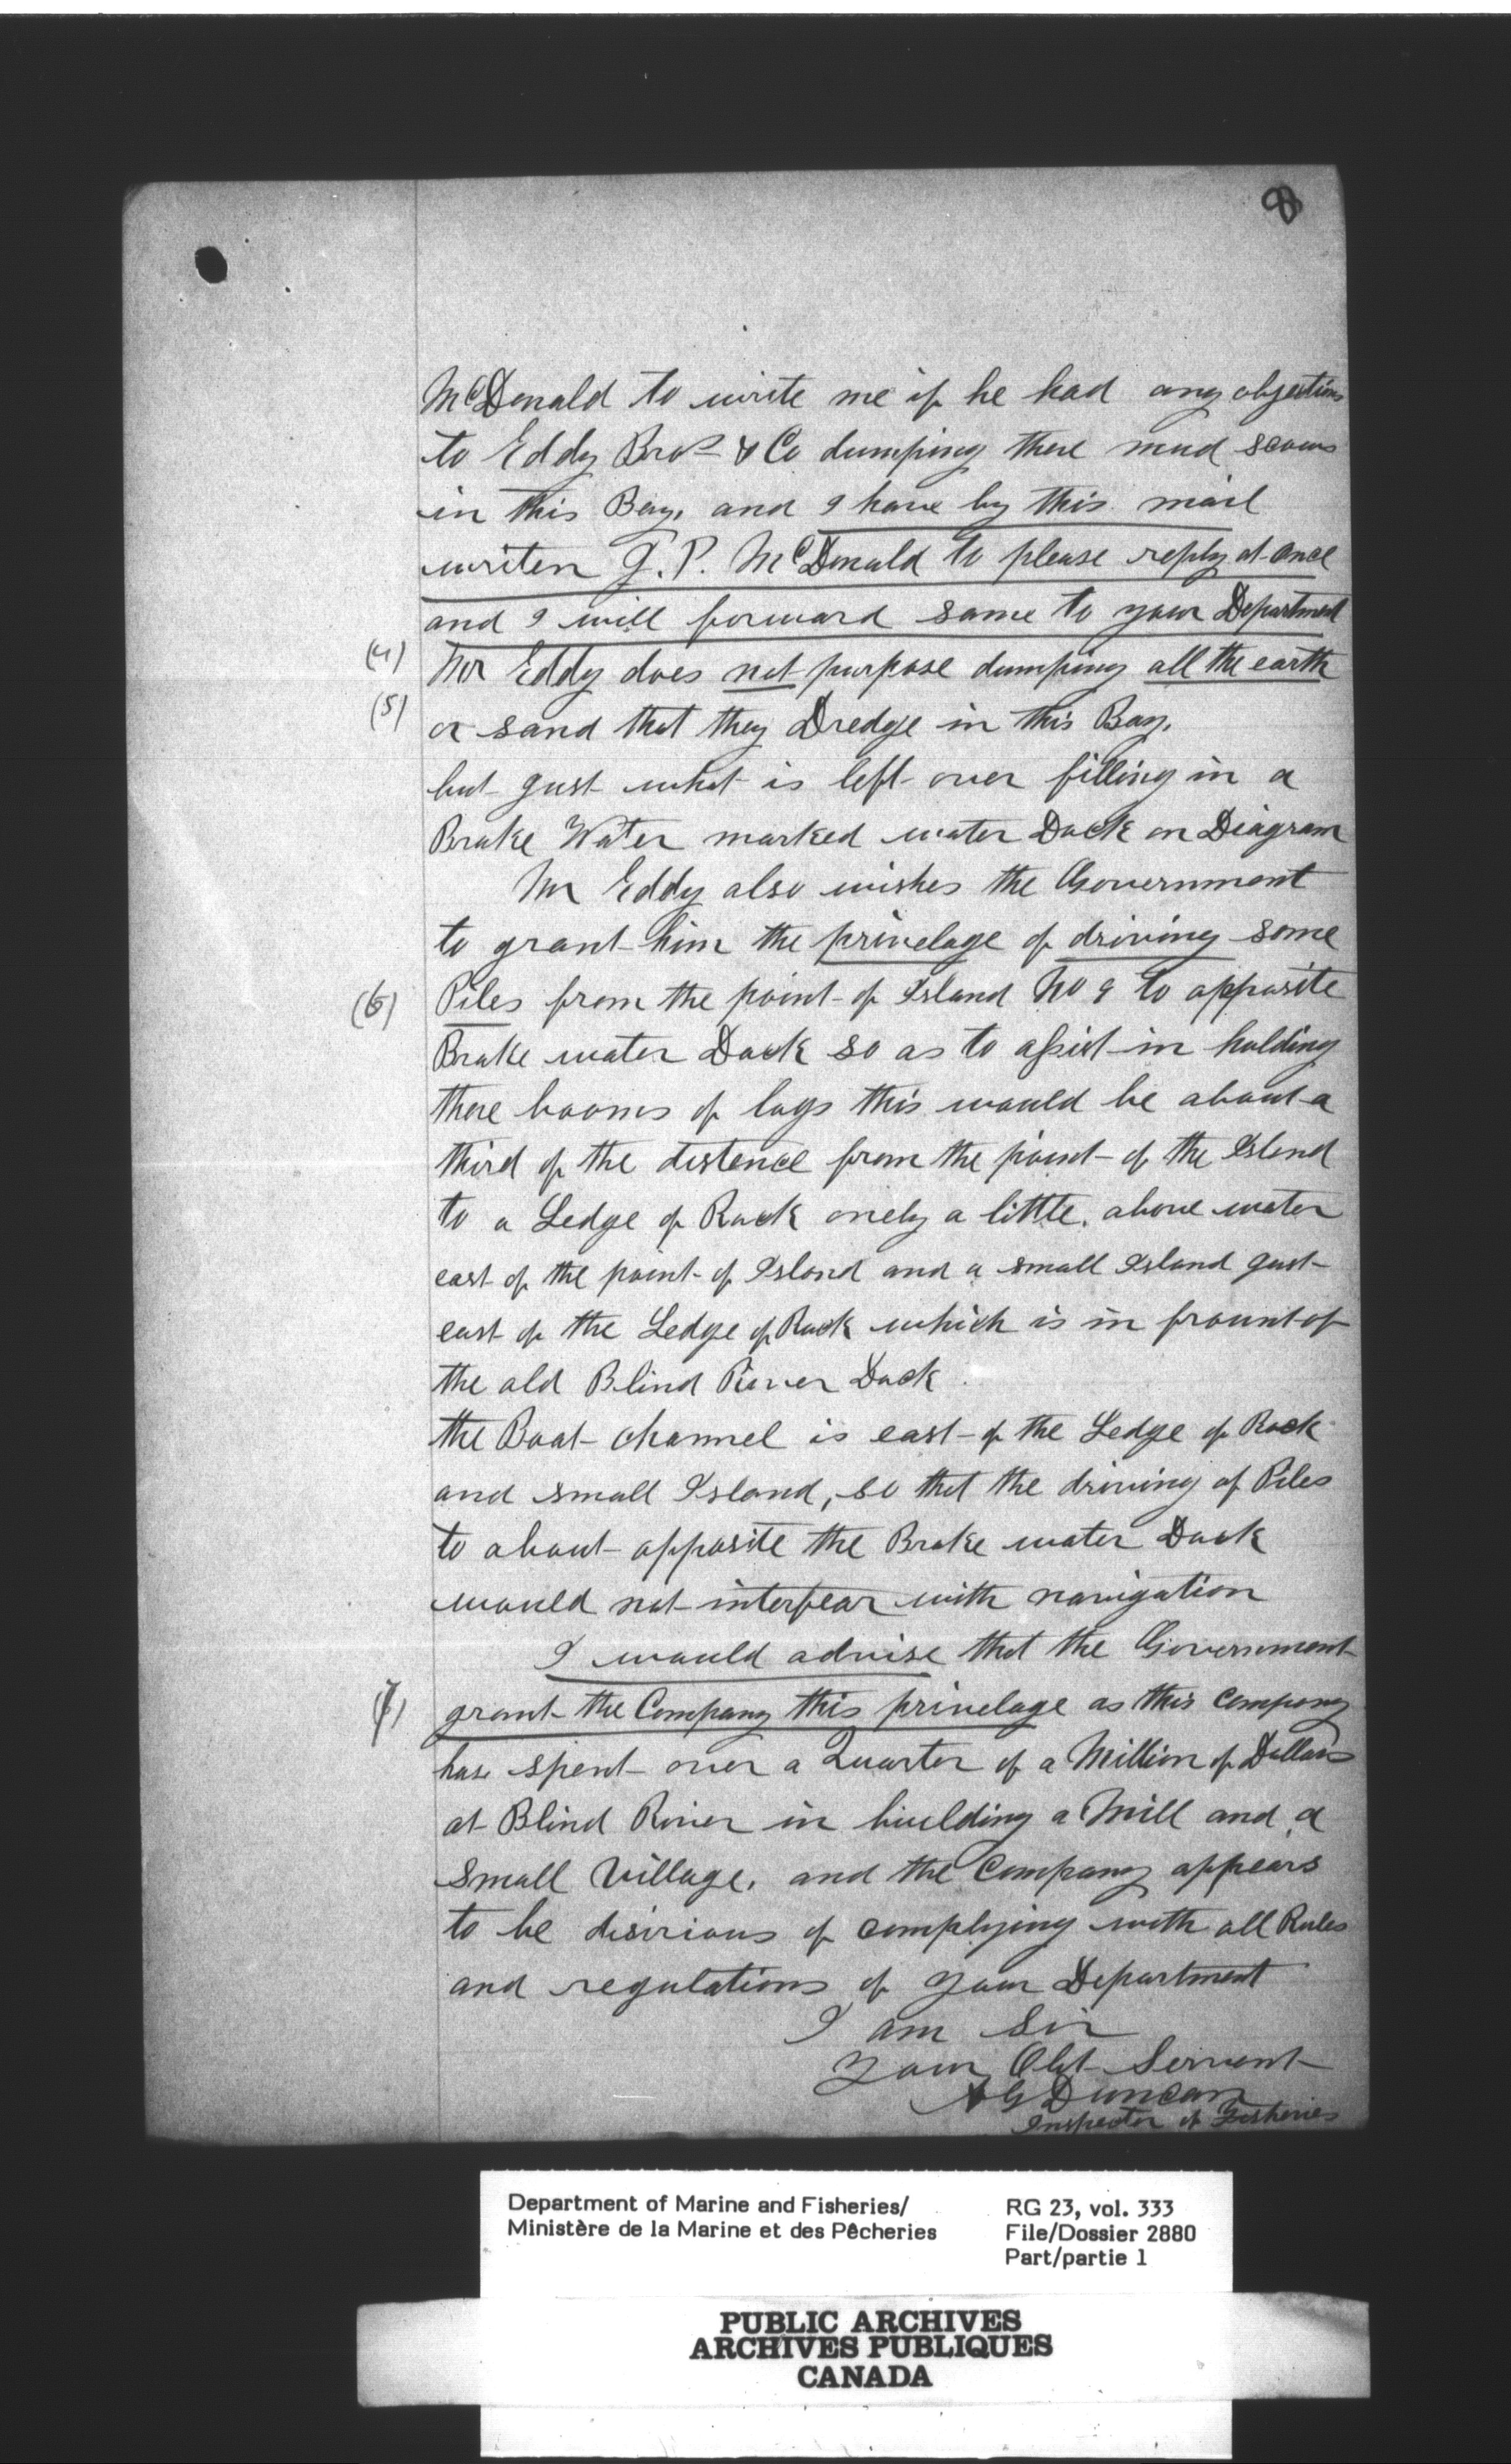 8
McDonald to write me if he had any objections
to Eddy Bros & Co dumping there mud scows
in this Bay, and I have by this mail
writen J. P. McDonald to please reply at once
and I will forward same to your Department
(4) Mr Eddy does not purpose dumping all the earth
(5) or sand that they Dredge in this Bay,
but gust what is left over filling in a
Brake Water marked water Dock on Diagram
Mr Eddy also wishes the Government
to grant him the privelage of driving some
(6) Piles from the point of Island No 9 to opposite
Brake water Dock so as to assist in holding
there booms of logs this would be about a
third of the distence from the point of the Island
to a Ledge of Rock onely a little above water
east of the point of Island and a small Island gust
east of the Ledge of Rock which is in frount of
the old Blind River Dock
the Boat channel is east of the Ledge of Rock
and small Island, so that the driving of Piles
to about opposite the Brake water Dock
would not interfear with navigation
I would advise that the Government
(7) grant the Company this privelage as this company
has spent over a Quarter of a Million of Dollars
at Blind River in building a Mill and a
Small Village, and the Company appears
to be disirious of complying with all Rules
and regulations of your Department
I am Sir
Your Obt Servent
A G Duncan
Inspector of Fisheries
Department of Marine and Fisheries/
Ministère de la Marine et des Pêcheries
RG 23, vol. 333
File/Dossier 2880
Part/partie 1
PUBLIC ARCHIVES
ARCHIVES PUBLIQUES
CANADA